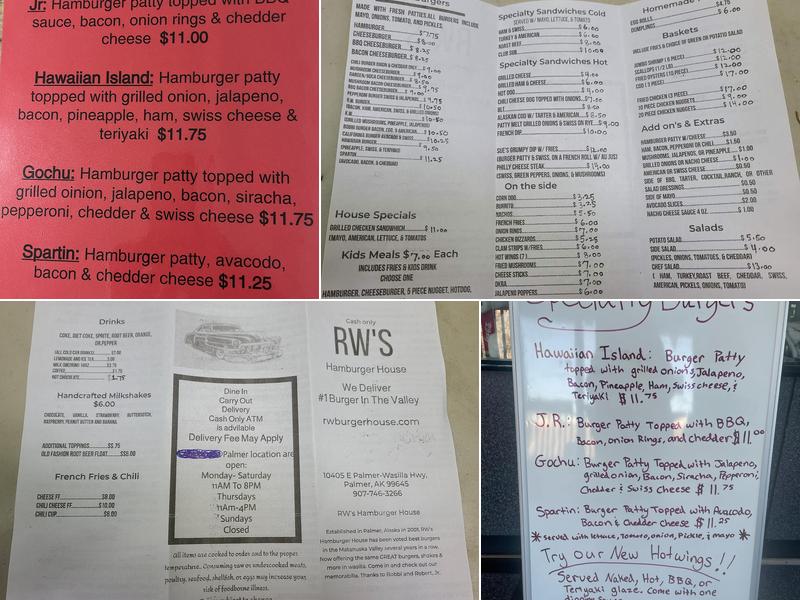 Jr: Hamburger patty topped with BBQ
sauce, bacon, onion rings & chedder
cheese $11.00
Hawaiian Island: Hamburger patty
toppped with grilled onion, jalapeno,
bacon, pineapple, ham, swiss cheese &
teriyaki $11.75
Gochu: Hamburger patty topped with
grilled oinion, jalapeno, bacon, siracha,
pepperoni, chedder & swiss cheese $11.75
Spartin: Hamburger patty, avacodo,
bacon & chedder cheese $11.25
MADE WITH FRESH PATTIES. ALL BURGERS INCLUDE
MAYO, ONIONS, TOMATO, AND PICKLES.
HAMBURGER $7.75
CHEESEBURGER $8.00
BBQ CHEESEBURGER $8.25
BACON CHEESEBURGER $8.25
MUSHROOM CHEESEBURGER
(BACON, HAM, AMERICAN, SWISS, & GRILLED ONIONS)
K.W. $10.50
(GRILLED MUSHROOMS, PINEAPPLE, JALAPENO)
CALIFORNIA BURGER AVOCADO & SWISS $10.25
HAWAIIAN BURGER
(PINEAPPLE, SWISS, & TERIYAKI) 9.50
SPARTIN $11.25
(AVOCADO, BACON, & CHEDDAR)
House Specials
GRILLED CHICKEN SANDWHICH $11.00
(MAYO, AMERICAN, LETTUCE, & TOMATO)
Kids Meals $7.00 Each
INCLUDES FRIES & KIDS DRINK
CHOOSE ONE
HAMBURGER, CHEESEBURGER, 5 PIECE NUGGET, HOTDOG,
Specialty Sandwiches Cold
SERVED W/ MAYO, LETTUCE, & TOMATO
HAM & SWISS $6.00
TURKEY & AMERICAN $6.00
ROAST BEEF $8.00
CLUB SUB $10.00
Specialty Sandwiches Hot
GRILLED CHEESE $4.00
GRILLED HAM & CHEESE $6.00
HOT DOG $4.00
CHILI CHEESE DOG TOPPED WITH ONIONS $7.00
BLT
ALASKAN COD W/ TARTER & AMERICAN $8.50
PATTY MELT GRILLED ONIONS & SWISS ON RYE $9.00
FRENCH DIP $10.00
SUE'S GRUMPY DIP W/ FRIES $12.00
(BURGER PATTY & SWISS, ON A FRENCH ROLL W/ AU JUS)
PHILLY CHEESE STEAK $14.00
(SWISS, GREEN PEPPERS, ONIONS, & MUSHROOMS)
On the side
CORN DOG $3.25
BURRITO $3.25
NACHOS $5.50
FRENCH FRIES $6.00
ONION RINGS $7.00
CHICKEN GIZZARDS $5.25
CLAM STRIPS W/FRIES $6.00
HOT WINGS (7) $8.00
FRIED MUSHROOMS $7.00
CHEESE STICKS $7.00
OKRA $7.00
JALAPENO POPPERS $6.00
Homemade
EGG ROLLS $6.00
DUMPLINGS $6.00
Baskets
INCLUDE FRIES & CHOICE OF GREEN OR POTATO SALAD
JUMBO SHRIMP ( 6 PIECE) $12.00
SCALLOPS (1/2 LB) $12.00
FRIED OYSTERS (10 PIECE) $12.00
COD ( 1 PIECE) $17.00
FRIED CHICKEN (3 PIECE) $17.00
10 PIECE CHICKEN NUGGETS $9.00
20 PIECE CHICKEN NUGGETS $14.00
Add on's & Extras
HAMBURGER PATTY W/CHEESE $3.50
HAM, BACON, PEPPERONI OR CHILI $1.50
MUSHROOMS, JALAPENOS, OR PINEAPPLE $1.00
GRILLED ONIONS OR NACHO CHEESE $1.00
AMERICAN OR SWISS CHEESE $0.50
SIDE OF BBQ, TARTER, COCKTAIL, RANCH, OR OTHER
SALAD DRESSINGS $0.50
SIDE OF MAYO $0.50
AVOCADO SLICES $2.00
NACHO CHEESE SAUCE 4 OZ $1.00
Salads
POTATO SALAD $5.50
SIDE SALAD $4.00
(PICKLES, ONIONS, TOMATOES, & CHEDDAR)
CHEF SALAD $13.00
( HAM, TURKEY, ROAST BEEF, CHEDDAR, SWISS,
AMERICAN, PICKELS, ONIONS, TOMATO)
Drinks
COKE, DIET COKE, SPRITE, ROOT BEER, ORANGE,
DR.PEPPER
(ALL COLD CAN DRINKS) $2.00
LEMONADE AND ICE TEA
MILK
COFFEE
HOT CHOCOLATE
Handcrafted Milkshakes
$6.00
CHOCOLATE, VANILLA, STRAWBERRY, BUTTERSCOTCH,
RASPBERRY, PEANUT BUTTER AND BANANA
ADDITIONAL TOPPINGS $5.75
OLD FASHION ROOT BEER FLOAT $$8.00
French Fries & Chili
CHEESE FF $8.00
CHILI CHEESE FF $10.00
CHILI CUP $6.00
Dine In
Carry Out
Delivery
Cash Only ATM
is advilable
Delivery Fee May Apply
Palmer location are
open:
Monday- Saturday
11AM To 8PM
Thursdays
11Am-4PM
Sundays
Closed
All items are cooked to order and to the proper
temperature. Consuming raw or undercooked meats,
poultry, seafood, shellfish, or eggs may increase your
risk of foodborne illness.
Cash only
RW'S
Hamburger House
We Deliver
#1 Burger In The Valley
rwburgerhouse.com
10405 E Palmer-Wasilla Hwy,
Palmer, AK 99645
907-746-3266
RW's Hamburger House
Established in Palmer, Alaska in 2001, RW's
Hamburger House has been voted best burgers
in the Matanuska Valley several years in a row.
Now offering the same GREAT burgers, shakes &
more in wasilla. Come in and check out our
memorabilia. Thanks to Robbi and Robert, Jr.
Specialty Burgers
Hawaiian Island: Burger Patty
topped with grilled onions, Jalapeno,
Bacon, Pineapple, Ham, Swiss cheese, &
Teriyaki $11.75
J.R.: Burger Patty Topped with BBQ,
Bacon, onion Rings, and chedder $11.00
Gochu: Burger Patty Topped with Jalapeno,
grilled onion, Bacon, Siracha, Pepperoni,
Chedder & Swiss Cheese $11.75
Spartin: Burger Patty Topped with Avacado,
Bacon & Chedder Cheese $11.25
*Served with lettuce, Tomato, onion, Pickle, & mayo*
Try our New Hotwings!!
Served Naked, Hot, BBQ, or
Teriyaki glaze. Come with one